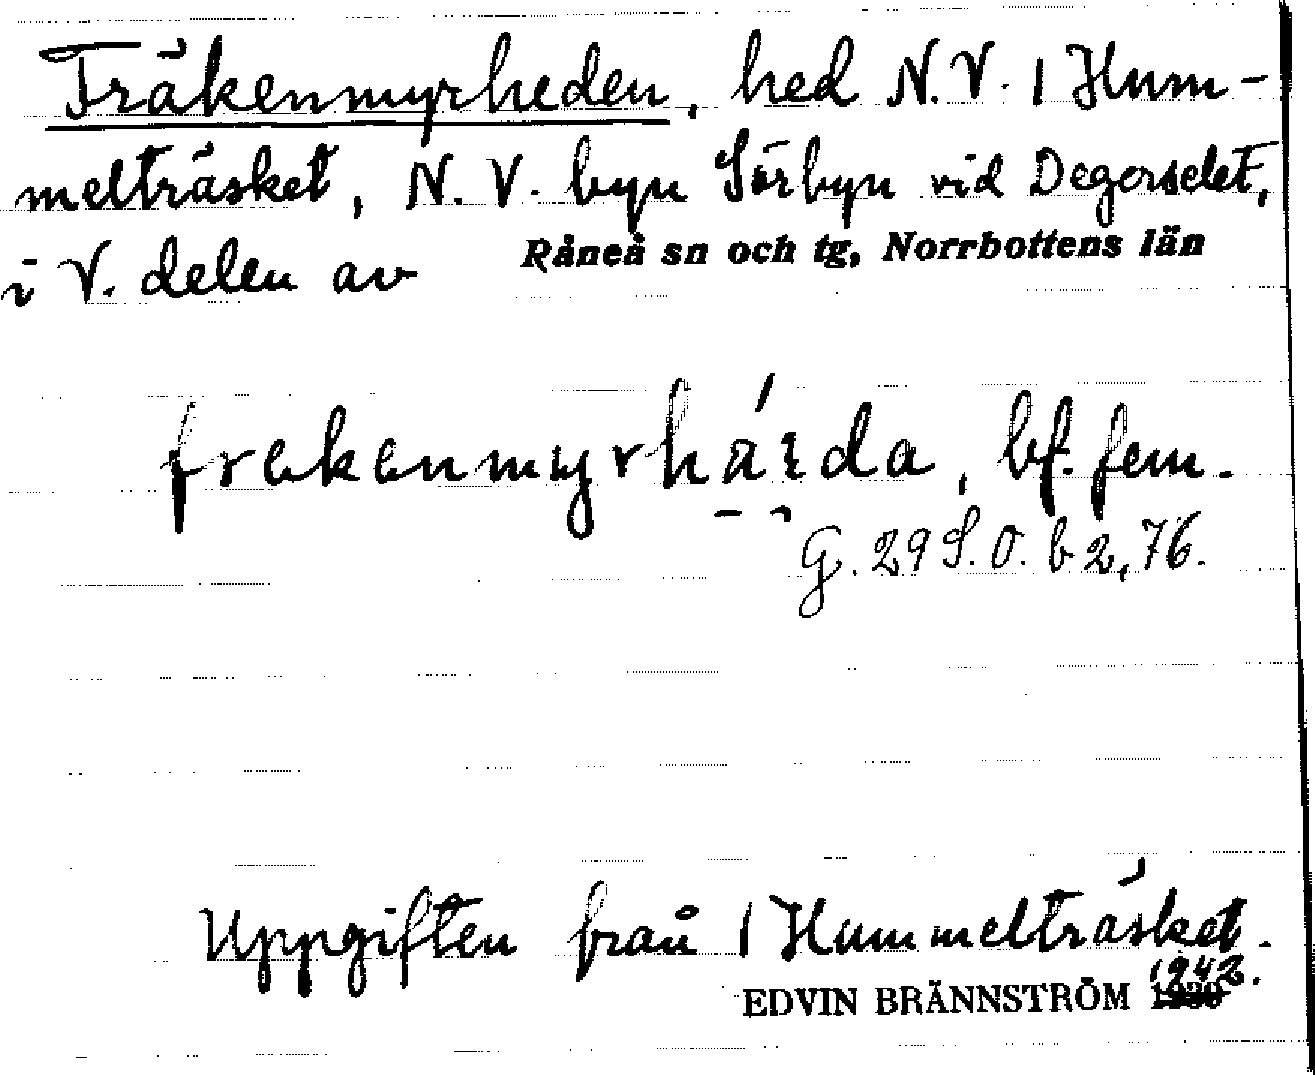 Fräkenmyrheden, hed N.V. 1 Hum-
melträsket, N.V. byn Sörbyn vid Degerselet,
i V. delen av Råneå sn och tg, Norrbottens län
frakanmyrhárda, bf. fem.
G. 29 S.O. b 2, 76.
Uppgiften från 1 Hummelträsket.
EDVIN BRÄNNSTRÖM 1942.